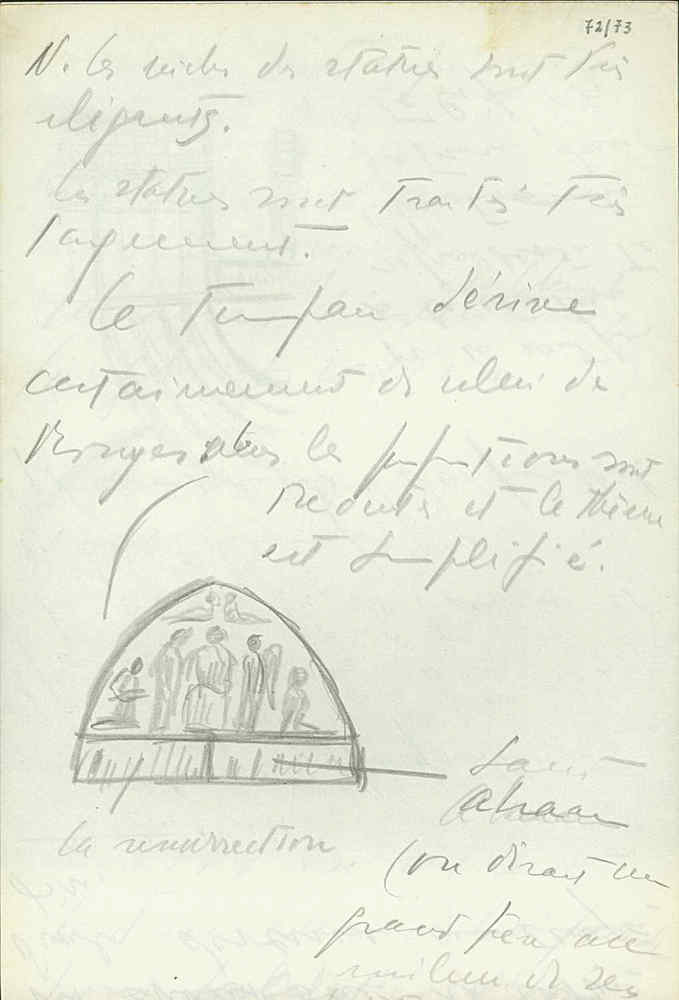 72/73
N. les niches des statues sont très
élégants.
les statues sont traités très
largement.
Le Tympan dérive
certainement de celui de
Bourges mais les proportions sont
réduites et le thème
est simplifié.
Saint
Abraam
la resurrection
(on dirait un
grand feu au
milieu de ses